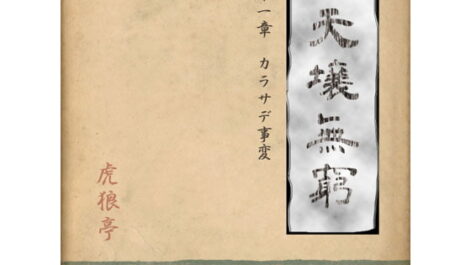 天壌無窮
一章 カラサデ事変
虎狼亭